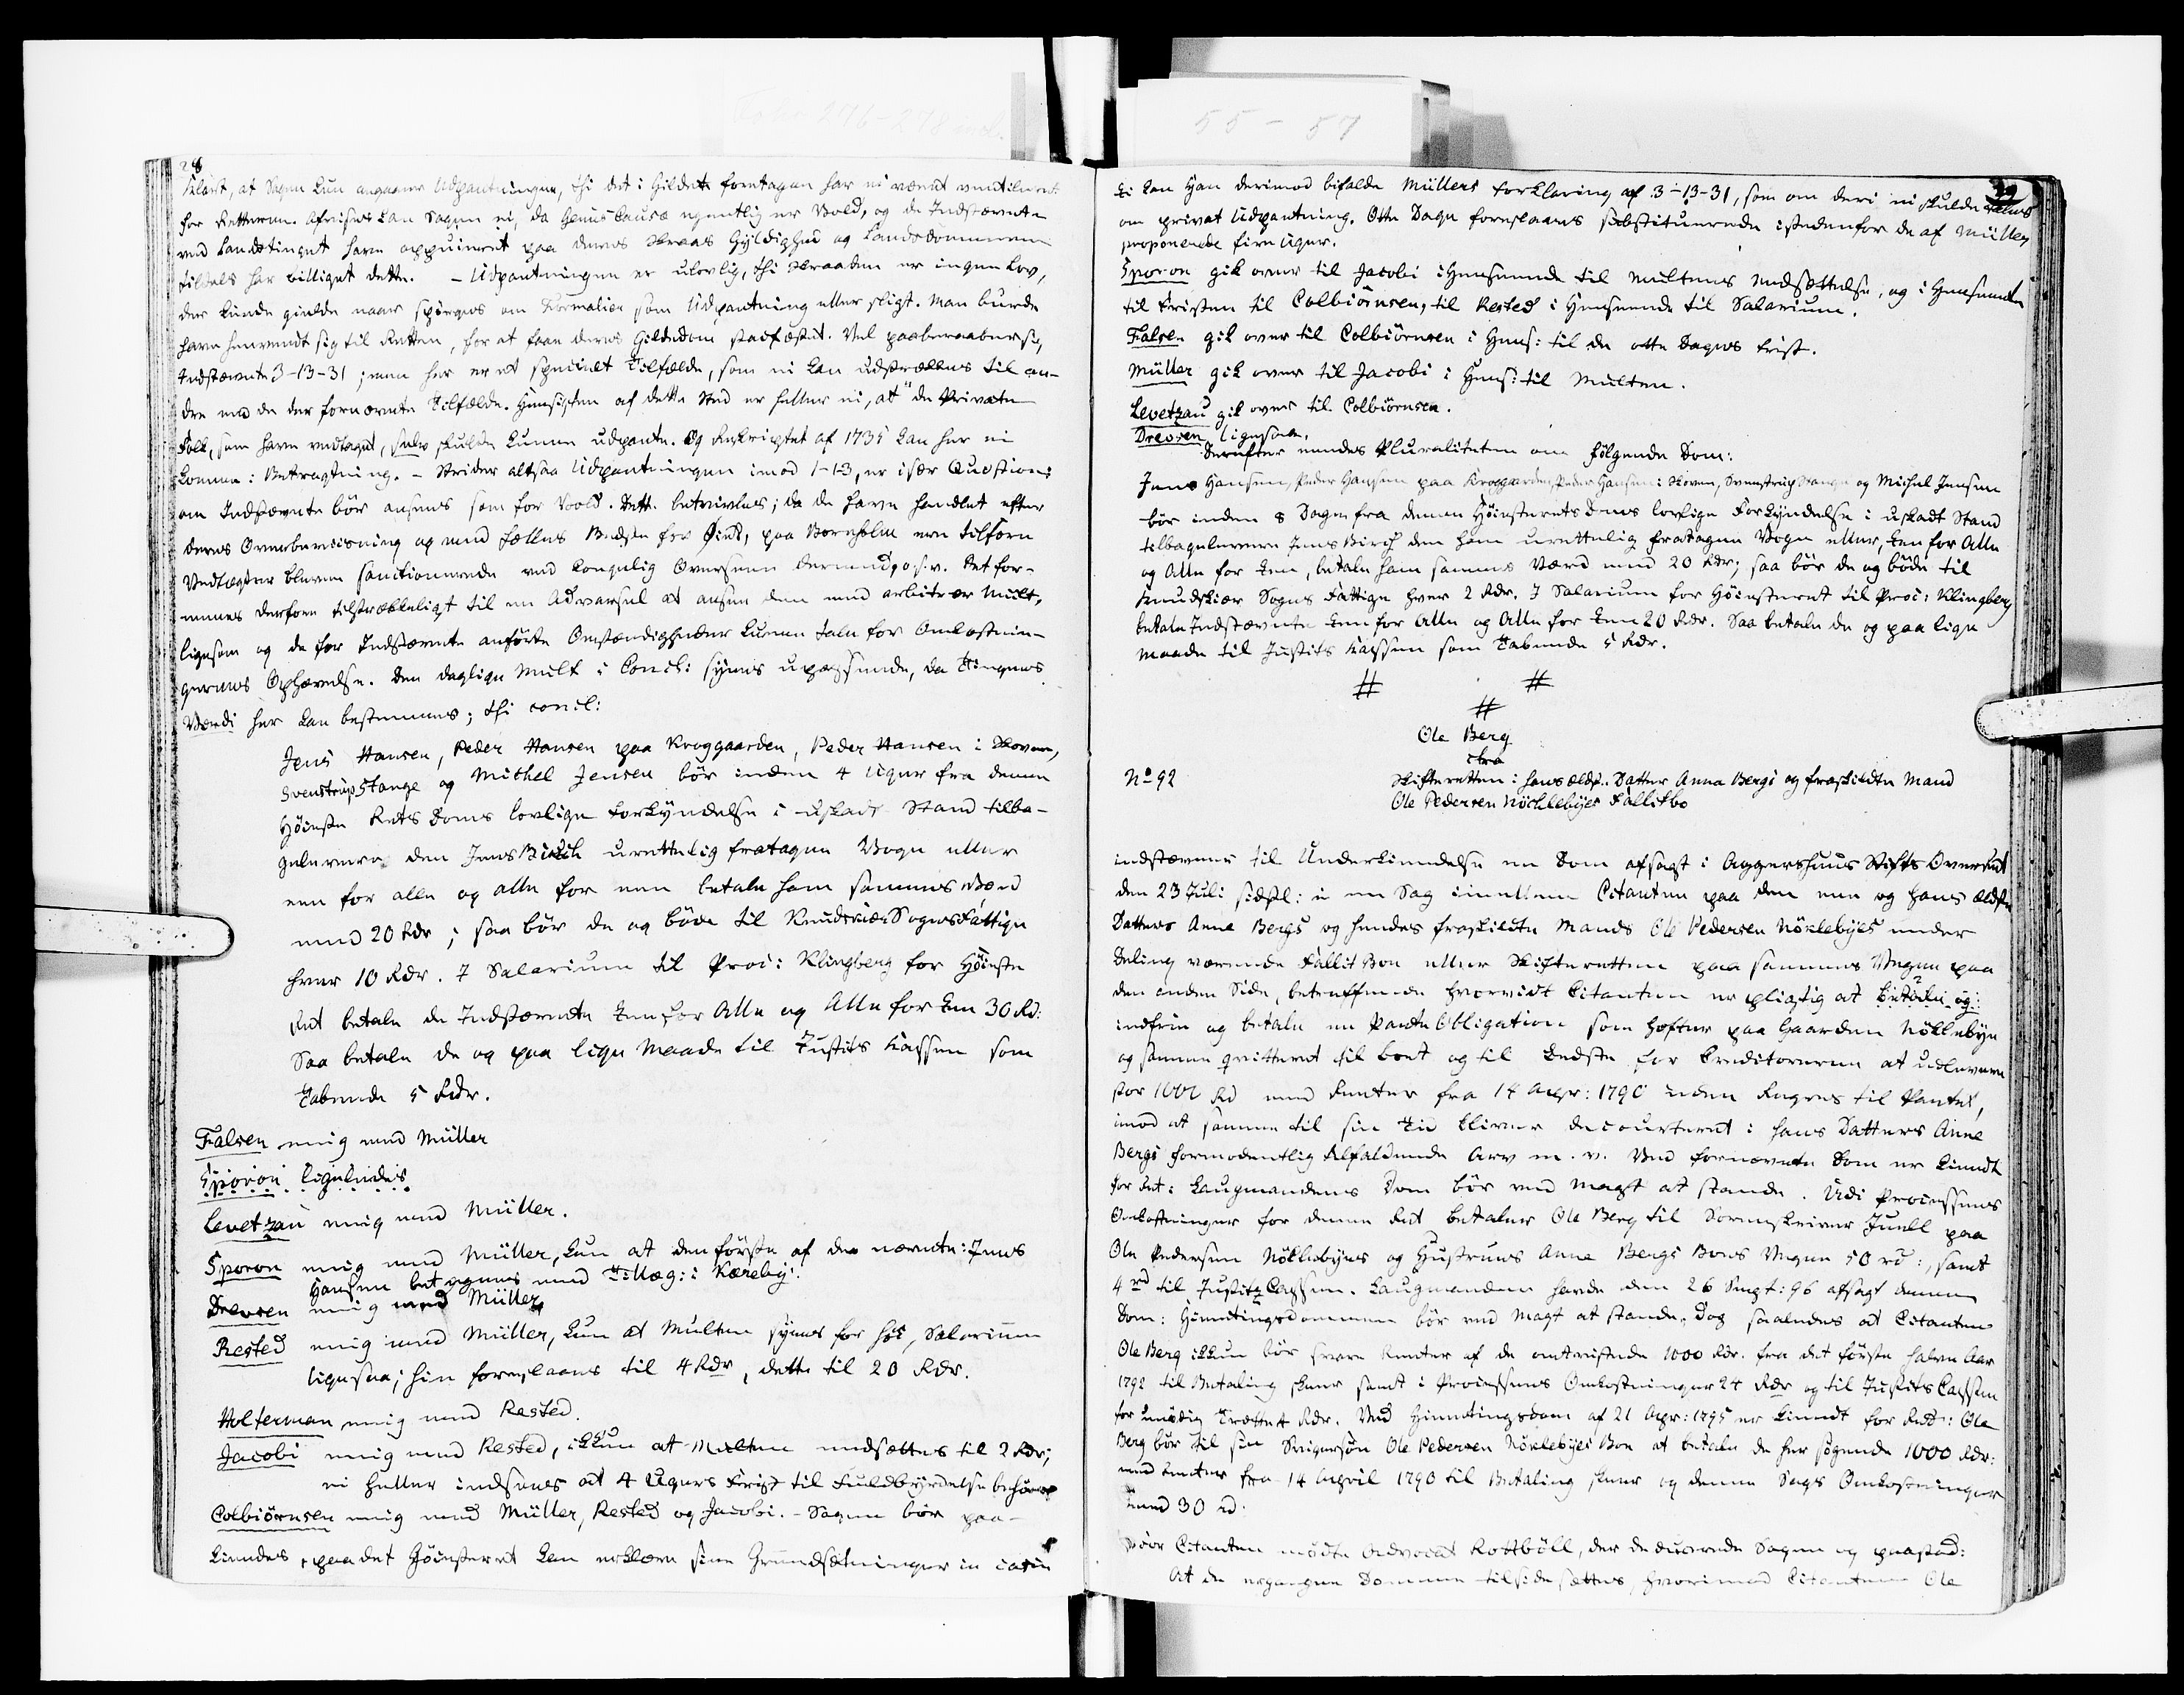 28
klart, at Sagen kun angaaer Udpantningen, thi det i Gildet foretagen har ei været ventileret
for Retterne. Afvises kan Sagen ei, da Genus Causæ egentlig er Vold, og de Indstævnte
ved Landstinget have acquieceret paa deres Skraas Gyldighed og Landsdommeren
tildels har billiget dette. – Udpantningen er ulovlig, thi Skraaden er ingen Lov,
der kunde gielde naar spørges om Formalier som Udpantning eller sligt. Man burde
have henvendt sig til Retten, for at faae deres Gildedom stadfæstet. Vel paaberaaber sig
Indstævnte 3-13-31; men her er et specielt Tilfælde, som ei kan udstrækkes til an-
dre end de der fornævnte Tilfælde. Hensigten af dette Sted er heller ei, at de Private
Folk, som have vedtaget, selv skulde kunne udpante. Og Rescriptet af 1735 kan her ei
komme i Betragtning. – Strider altsaa Udpantningen imod 1-13, er især Quæstion:
om Indstævnte bør ansees som for Vold. Dette betvivles; da de have handlet efter
deres Overbeviisning og med fælles Bedste for Øiet, paa Bornholm ere tilforn
Vedtægter blevne sanctionerede ved kongelig Øvrigheden dermed, o.s.v. Det for-
menes derfore tilstrækkeligt til en Advarsel at ansee dem med arbitrær Mulct,
ligesom og de for Indstævnte anførte Omstændigheder kunne tale for Omkostnin-
gernes Ophævelse. Den daglige Mulct i Concl: synes upassende, da Tingenes
Værdi her kan bestemmes; thi concl:
Jens Hansen, Peder Hansen paa Kroggaarden, Peder Hansen i Skoven,
Svenstrup Stange og Michel Jensen bør inden 4 Uger fra denne
Høieste Rets Doms lovlige Forkyndelse i uskadt Stand tilba-
gelevere den Jens Birch urettelig fratagne Vogn eller
een for alle og alle for een betale ham sammes Værd
med 20 Rdr; saa bør de og bøde til Knudskier Sogns Fattige
hver 10 Rdr. I Salarium til Proc: Klingberg for Høieste
Ret betale de Indstævnte Een for Alle og Alle for Een 30 Rd:
Saa betale de og paa lige Maade til Justits Kassen som
tabende 5 Rdr.
Falsen enig med Müller
Sporon ligeledes
Levetzau enig med Müller.
Sporon enig med Müller, kun at den første af de nævnte: Jens
Hansen betegnes med Tillæg: i Kæreby.
Drevsen enig med Müller
Rested enig med Müller, kun at Mulcten synes for høi, Salarium
ligesaa; hiin foreslaaes til 4 Rdr, dette til 20 Rdr.
Holterman enig med Rested.
Jacobi enig med Rested, ikkun at Mulcten nedsættes til 2 Rdr;
ei heller indsees at 4 Ugers Frist til Fuldbyrdelse behøves
Colbiörnsen enig med Müller, Rested og Jacobi. – Sagen bør paa-
kiendes, paa det Høiesteret kan erklære sine Grundsætninger in casu
29
Ei kan Han derimod bifalde Müllers Forklaring af 3-13-31, som om deri ei skulde tales
om privat Udpantning. Otte Dage foreslaaes substituerede istedenfor de af Müller
proponerede fire Uger.
Sporon gik over til Jacobi i Henseende til Multens Nedsættelse, og i Henseende
til Fristen til Colbiörnsen, til Rested i Henseende til Salarium.
Falsen gik over til Colbiörnsen i Hens: til de otte Dages Frist.
Müller gik over til Jacobi i Hens: til Multen.
Levetzau gik over til Colbiörnsen.
Drevsen ligesaa.
Derefter eendes Pluraliteten om følgende Dom:
Jens Hansen, Peder Hansen paa Kroggaarden, Peder Hansen i Skoven, Svenstrup Stange og Michel Jensen
bør inden 8 Dage fra denne Høiesterets Doms lovlige Forkyndelse i uskadt Stand
tilbagelevere Jens Birch den ham urettelig fratagne Vogn eller, Een for Alle
og Alle for Een, betale ham sammes Værd med 20 Rdr; saa bør de og bøde til
Knudskier Sogns Fattige hver 2 Rdr. I Salarium for Høiesteret til Proc: Klingberg
betale Indstævnte Een for Alle og Alle for Een 20 Rdr. Saa betale de og paa lige
Maade til Justits Kassen som tabende 5 Rdr.
# #
#
Ole Berg
ctra
No 92 Skifteretten i hans ældste Datter Anna Bergs og fraskildte Mand
Ole Pedersen Nöcklebyes Fallitbo
indstævner til Underkiendelse en Dom afsagt i Aggershuus Stifts Overret
den 23 Juli sidstl: i en Sag imellem Citanten paa den ene og hans ældste
Datters Anne Bergs og hendes fraskildte Mands Ole Pedersen Nöklebyes under
Deling værende Fallit Boe eller Skifteretten paa sammes Vegne paa
den anden Side, betreffende hvorvidt Citanten er pligtig at betale og
indfrie og betale en Pante Obligation som hefter paa Gaarden Nöklebye
og samme qvitteret til boet og til Bedste for Creditorerne at udlevere
stor 1000 Rd med Renter fra 14 Apr: 1790 uden Regres til Pantet,
imod at samme til sin Tid bliver decourteret i hans Datters Anne
Bergs formodentlig tilfaldende Arv m. v. Ved fornævnte Dom er kiendt
for Ret: Laugmandens Dom bør ved Magt at stande. Udi Processens
Omkostninger for denne Ret betaler Ole Berg til Sorenskriver Juell paa
Ole Pedersen Nöklebyes og Hustrues Anne Bergs Boes Vegne 50 rd:, samt
4 rd til Justitz Cassen. Laugmanden havde den 26 Sept: 96 afsagt denne
Dom: Hiemtingsdommen bør ved Magt at stande. Dog saaledes at Citanten
Ole Berg ikkun bør svare Renter af de omtvistede 1000 Rdr. fra det første halve Aar
1792 til Betaling skeer samt i Processens Omkostninger 24 Rdr og til Justits Cassen
for unødig Trætte 4 Rdr. Ved Hiemtingsdom af 21 Apr: 1795 er kiendt for Ret: Ole
Berg bør til sin Svigersøn Ole Pedersen Nöklebyes Boe at betale de her søgende 1000 Rdr:
med Renter fra 14 April 1790 til Betaling skeer og denne Sags Omkostninger
med 30 rd:
For Citanten mødte Advocat Rottböll, der deducerede Sagen og paastod:
At de ergangne Domme tilsidesættes, hvorimod Citanten Ole
55 – 57